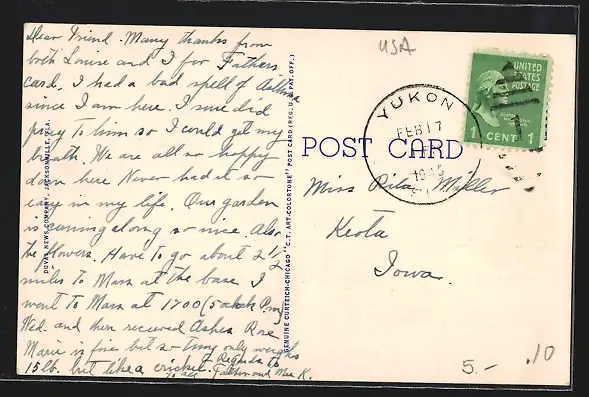 Dear Friend. Many thanks from
both Louise and I for Fathers
card. I had a bad spell of Asthma
since I am here. I sure did
pray to him so I could get my
breath. We are all so happy
down here Never had it so
easy in my life. Our garden
is coming along so nice. Also
the flowers. Have to go about 2 1/2
miles to Mass at the base I
went to Mass at 1700 (5 o'clock P.m)
Wed. and then received Ashes Rose
Marie is fine but so tiny only weighs
15 lb. but like a cricket. Regards to
to all Father and Mrs K.
DUVAL NEWS COMPANY, JACKSONVILLE, FLA.
GENUINE CURTEICH-CHICAGO "C.T. ART-COLORTONE" POST CARD (REG. U.S. PAT. OFF.)
USA
UNITED
STATES
POSTAGE
1 CENT 1
YUKON
FEB 17
POST CARD
Miss Rita Miller
Keota
Iowa.
5.-
.10